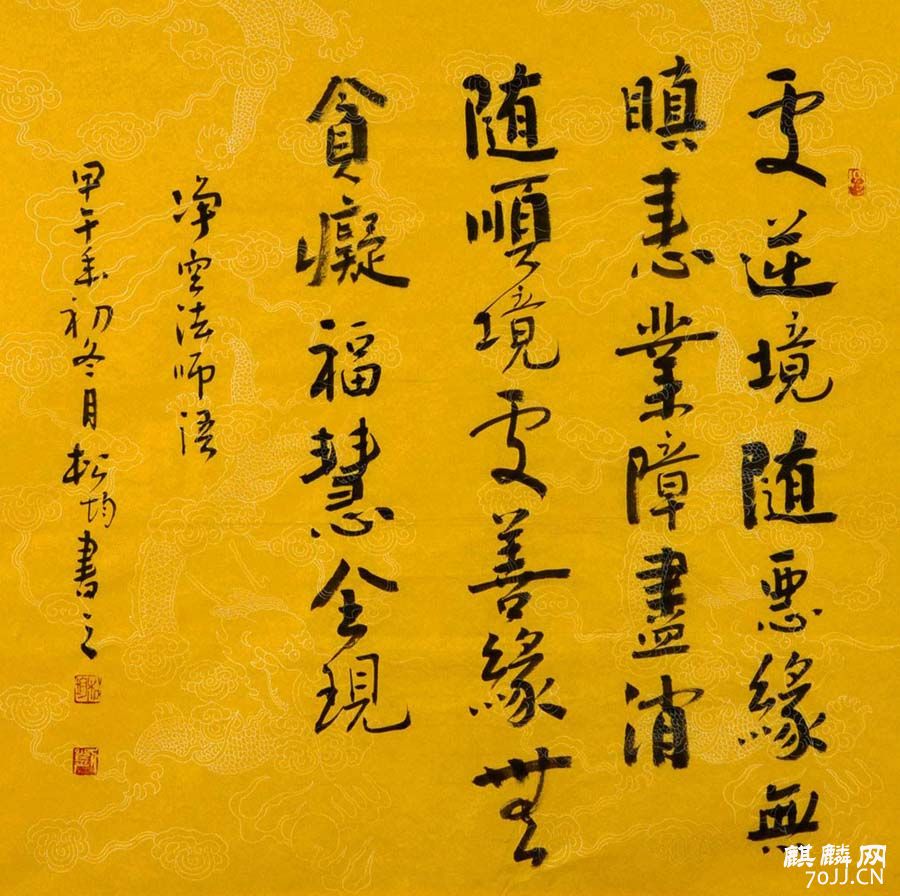 处逆境随恶缘無
瞋恚業障盡消
随順境处善緣無
貪癡福慧全現
净空法师语
甲午年初冬月松均書之
麒麟网
70JJ.CN